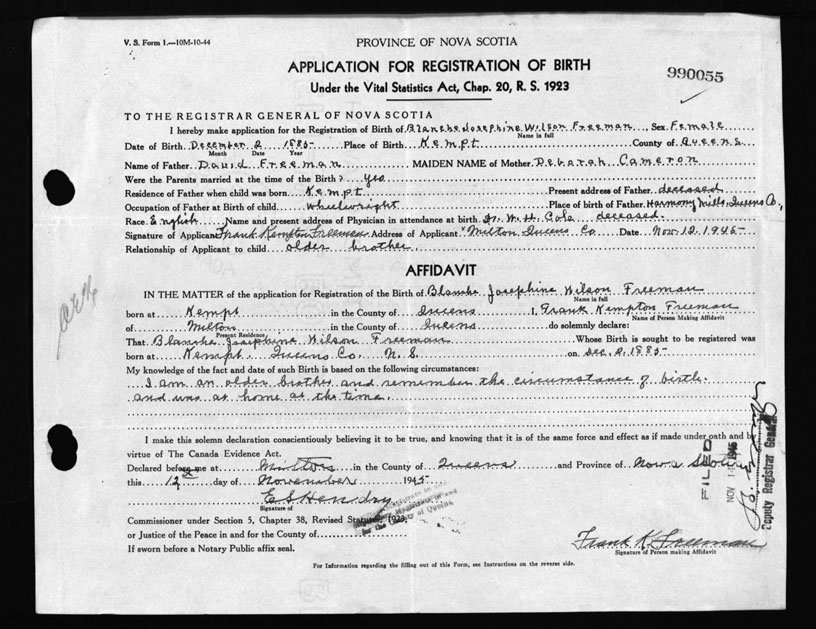 V. S. Form 1.—10M-10-44
PROVINCE OF NOVA SCOTIA
APPLICATION FOR REGISTRATION OF BIRTH
990055
Under the Vital Statistics Act, Chap. 20, R. S. 1923
TO THE REGISTRAR GENERAL OF NOVA SCOTIA
I hereby make application for the Registration of Birth of Blanche Josephine Wilson Freeman, Sex Female
Name in full
Date of Birth December 2 1885 Place of Birth Kempt County of Queens
Month Date Year
Name of Father David Freeman MAIDEN NAME of Mother Deborah Cameron
Were the Parents married at the time of the Birth? Yes
Residence of Father when child was born Kempt Present address of Father deceased
Occupation of Father at Birth of child Wheelwright Place of birth of Father Harmony Mills, Queens Co.,
Race English Name and present address of Physician in attendance at birth Dr. W. H. Cole deceased.
Signature of Applicant Frank Kempton Freeman Address of Applicant Milton Queens Co Date Nov. 12. 1945-
Relationship of Applicant to child older brother.
AFFIDAVIT
IN THE MATTER of the application for Registration of the Birth of Blanche Josephine Wilson Freeman
Name in full
born at Kempt in the County of Queens I, Frank Kempton Freeman
Name of Person Making Affidavit
of Milton in the County of Queens do solemnly declare:
Present Residence
That Blanche Josephine Wilson Freeman Whose Birth is sought to be registered was
born at Kempt Queens Co. N. S. on Dec. 2. 1885-
My knowledge of the fact and date of such Birth is based on the following circumstances:
I am an older brother and remember the circumstance of birth
and was at home at the time.
I make this solemn declaration conscientiously believing it to be true, and knowing that it is of the same force and effect as if made under oath and by
virtue of The Canada Evidence Act.
Declared before me at Milton in the County of Queens and Province of Nova Scotia
this 12 day of November 1945-
E S Hendry
Signature of
Commissioner under Section 5, Chapter 38, Revised Statutes, 1923
or Justice of the Peace in and for the County of
If sworn before a Notary Public affix seal.
Frank K. Freeman
Signature of Person making Affidavit
For Information regarding the filling out of this Form, see Instructions on the reverse side.
FILED
NOV 1945
Deputy Registrar General